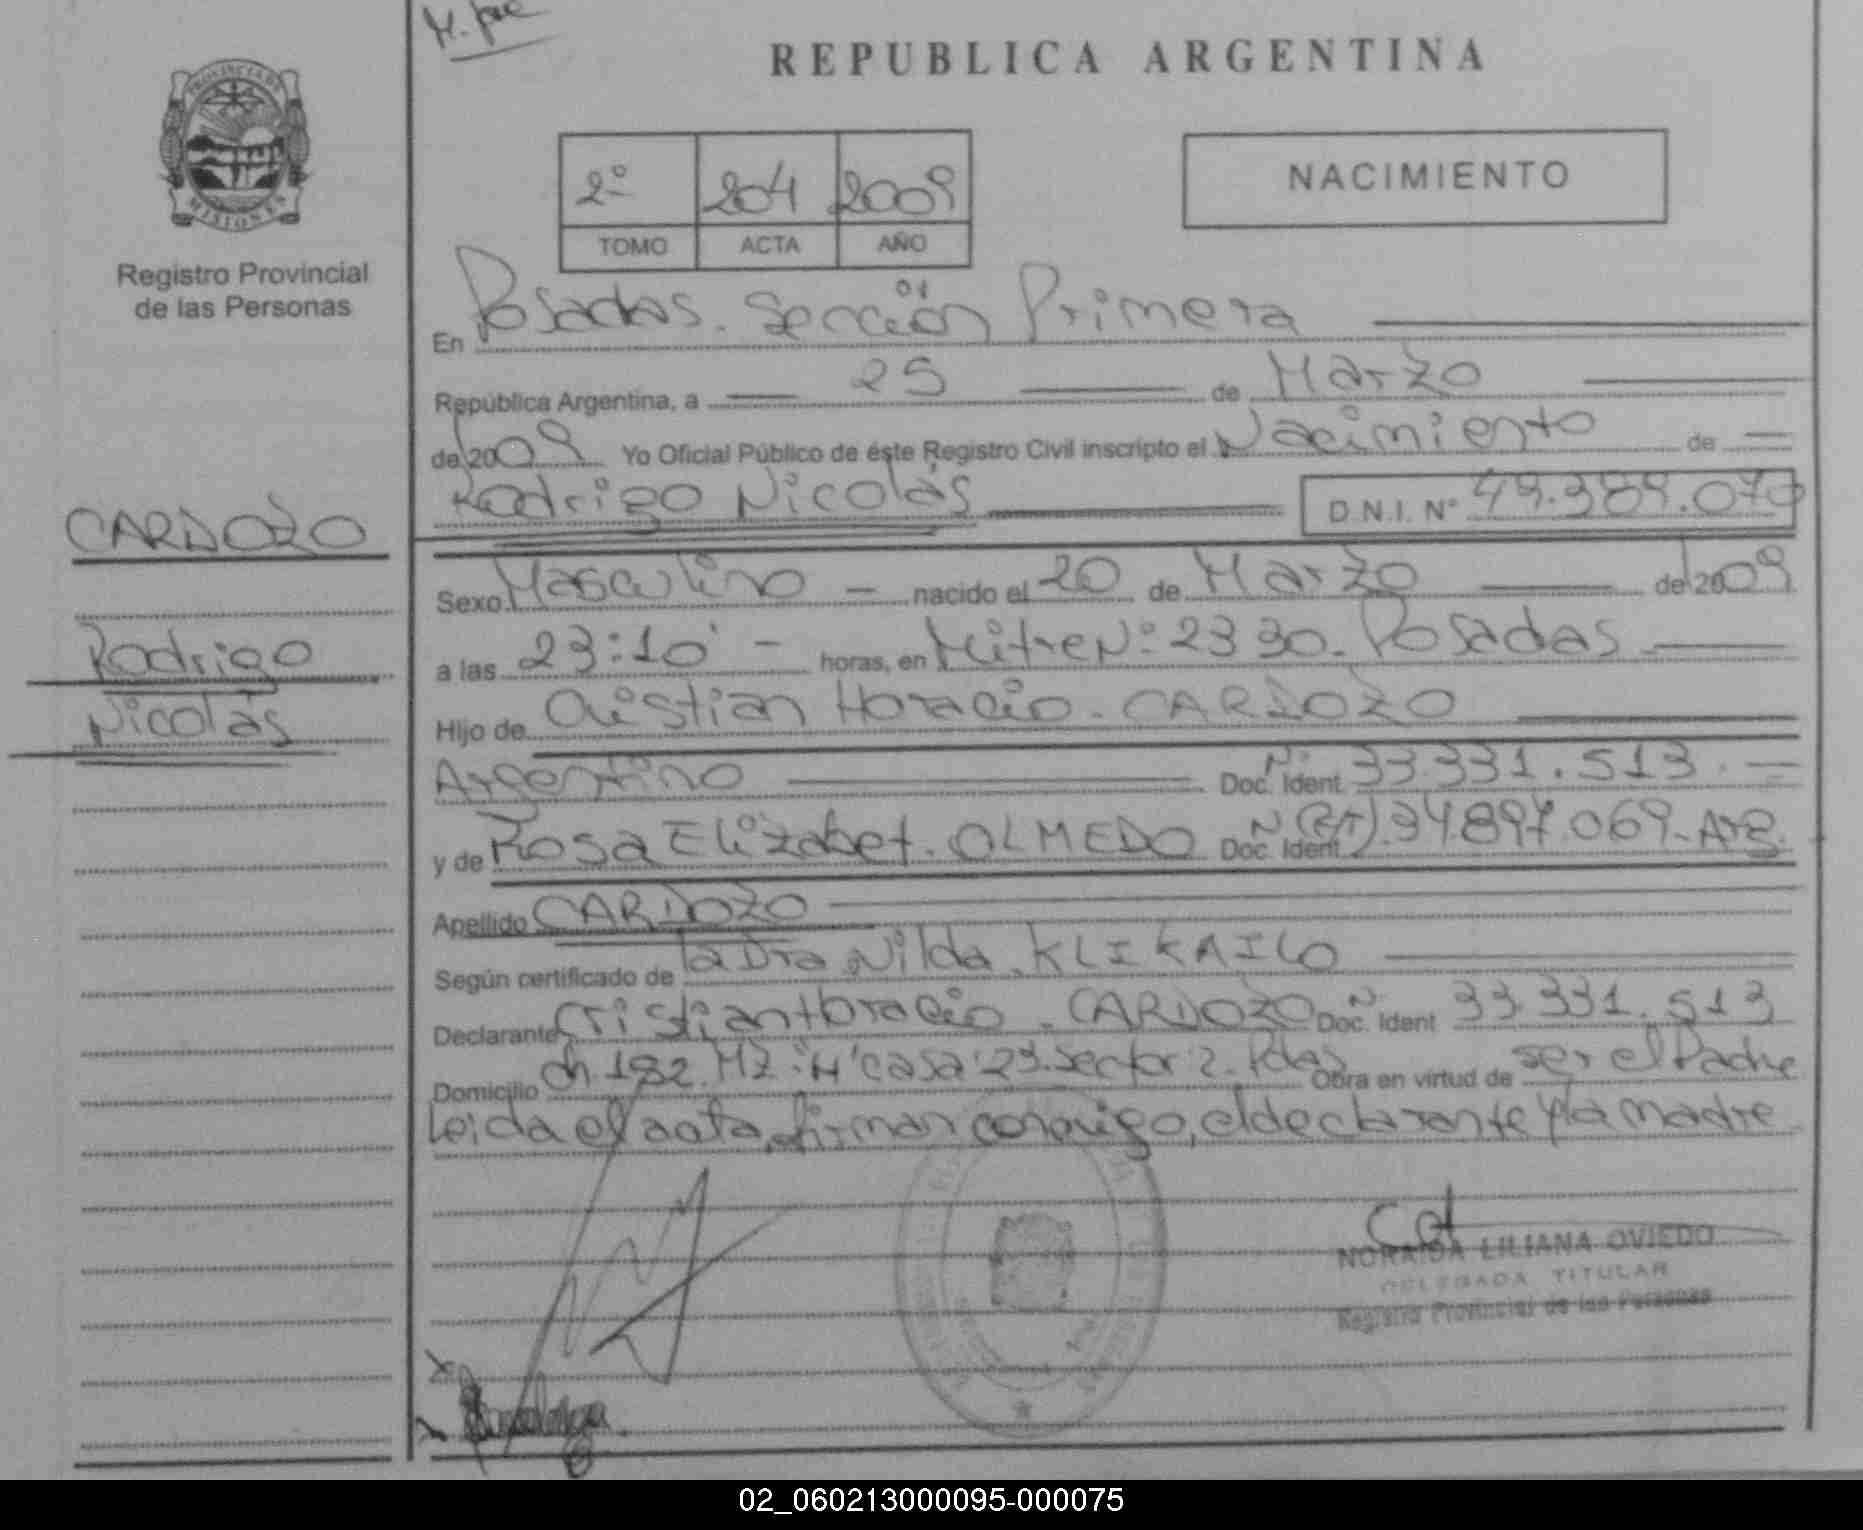 REPUBLICA ARGENTINA
PROVINCIA DE
MISIONES
Registro Provincial
de las Personas
2º 204 2009
TOMO ACTA AÑO
NACIMIENTO
En Posadas. Sección 01 Primera
República Argentina, a 25 de Marzo
de 2009 Yo Oficial Público de éste Registro Civil inscripto el Nacimiento de
Rodrigo Nicolás D.N.I. Nº
CARDOZO
Rodrigo
Nicolás
Sexo Masculino nacido el 20 de Marzo de 2009
a las 23:10 horas, en Mitre Nº 2330. Posadas
Hijo de Cristian Horacio. CARDOZO
Argentino Doc. Ident. Nº 33.331.513.
y de Rosa Elizabet. OLMEDO Doc. Ident. Nº 34.897.069 - Arg.
Apellido CARDOZO
Según certificado de la Dra Nilda. KLIKAILO
Declarante Cristian Horacio. CARDOZO Doc. Ident Nº 33.331.513
Domicilio Ch. 182. Mz: "H" casa: 23. Sector: 2. Pdas Obra en virtud de ser el Padre
Leida el acta, firman conmigo, el declarante y la madre.
NORAIDA LILIANA OVIEDO
DELEGADA TITULAR
Registro Provincial de las Personas
02_060213000095-000075